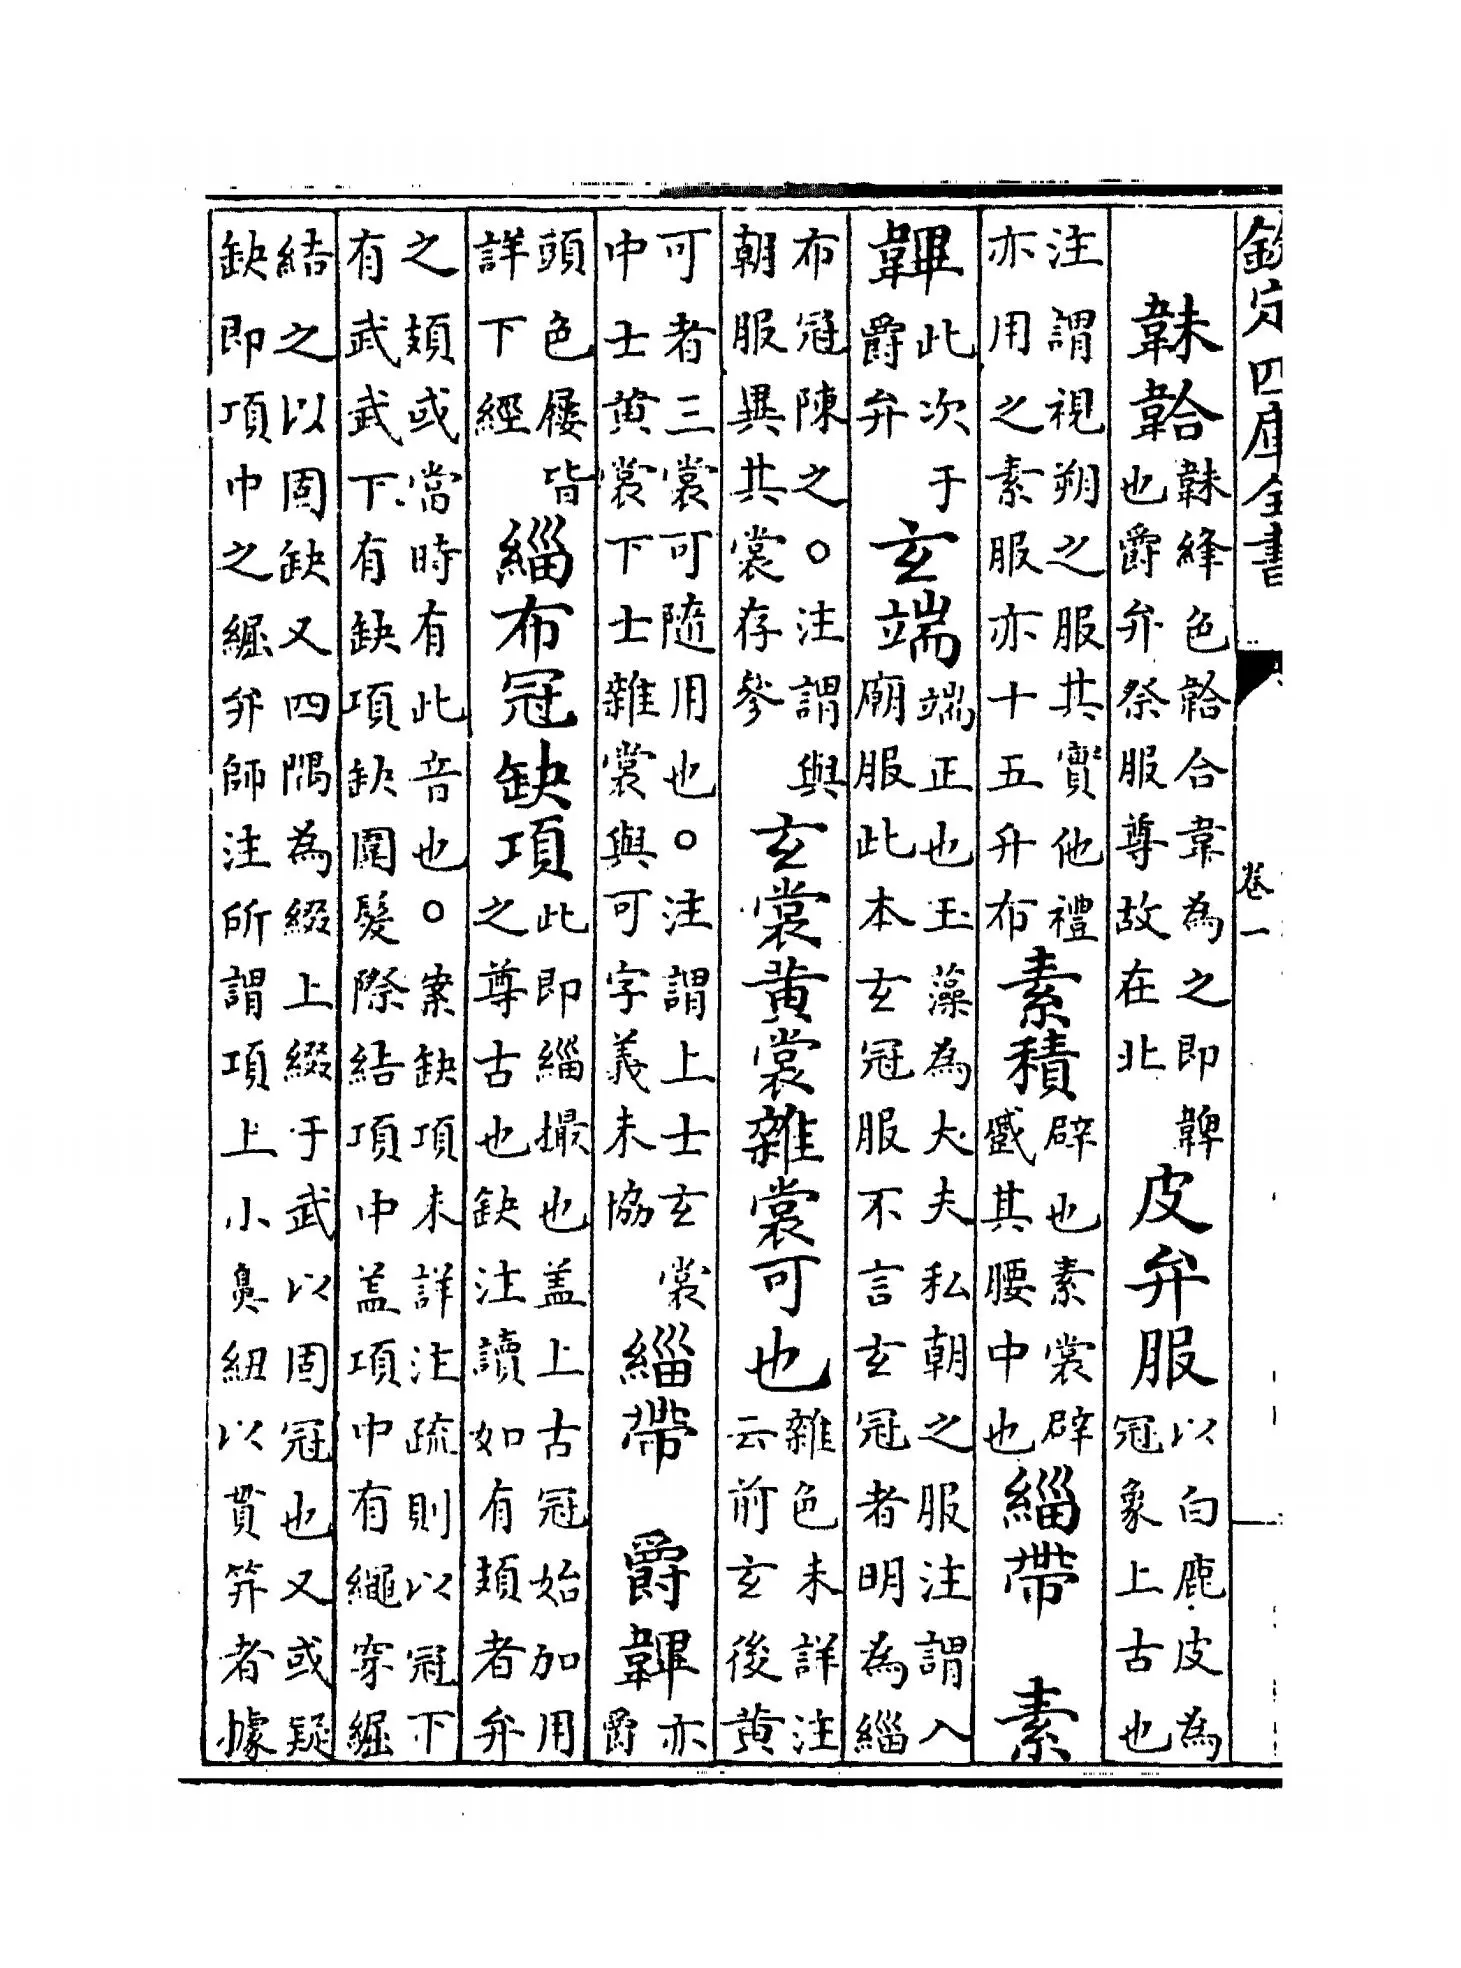 欽定四庫全書　卷一
韎韐韎絳色韐合韋為之即韠
也爵弁祭服尊故在北皮弁服以白鹿皮為
冠象上古也
注謂視朔之服其實他禮
亦用之素服亦十五升布素積辟也素裳辟
蹙其腰中也緇帶　素
韠此次于
爵弁玄端端正也玉藻為大夫私朝之服注謂入
廟服此本玄冠服不言玄冠者明為緇
布冠陳之○注謂與
朝服異其裳存參玄裳黄裳雜裳可也雜色未詳注
云前玄後黄
可者三裳可隨用也○注謂上士玄裳
中士黄裳下士雜裳與可字義未協緇帶　爵韠亦
爵
頭色屨皆
詳下經緇布冠缺項此即緇撮也盖上古冠始加用
之尊古也缺注讀如有頍者弁
之頍或當時有此音也○案缺項未詳注疏則以冠下
有武武下有缺項缺圍髮際結項中盖項中有繩穿𦁐
結之以固缺又四隅為綴上綴于武以固冠也又或疑
缺即項中之𦁐弁師注所謂項上小鼻紐以貫笄者據